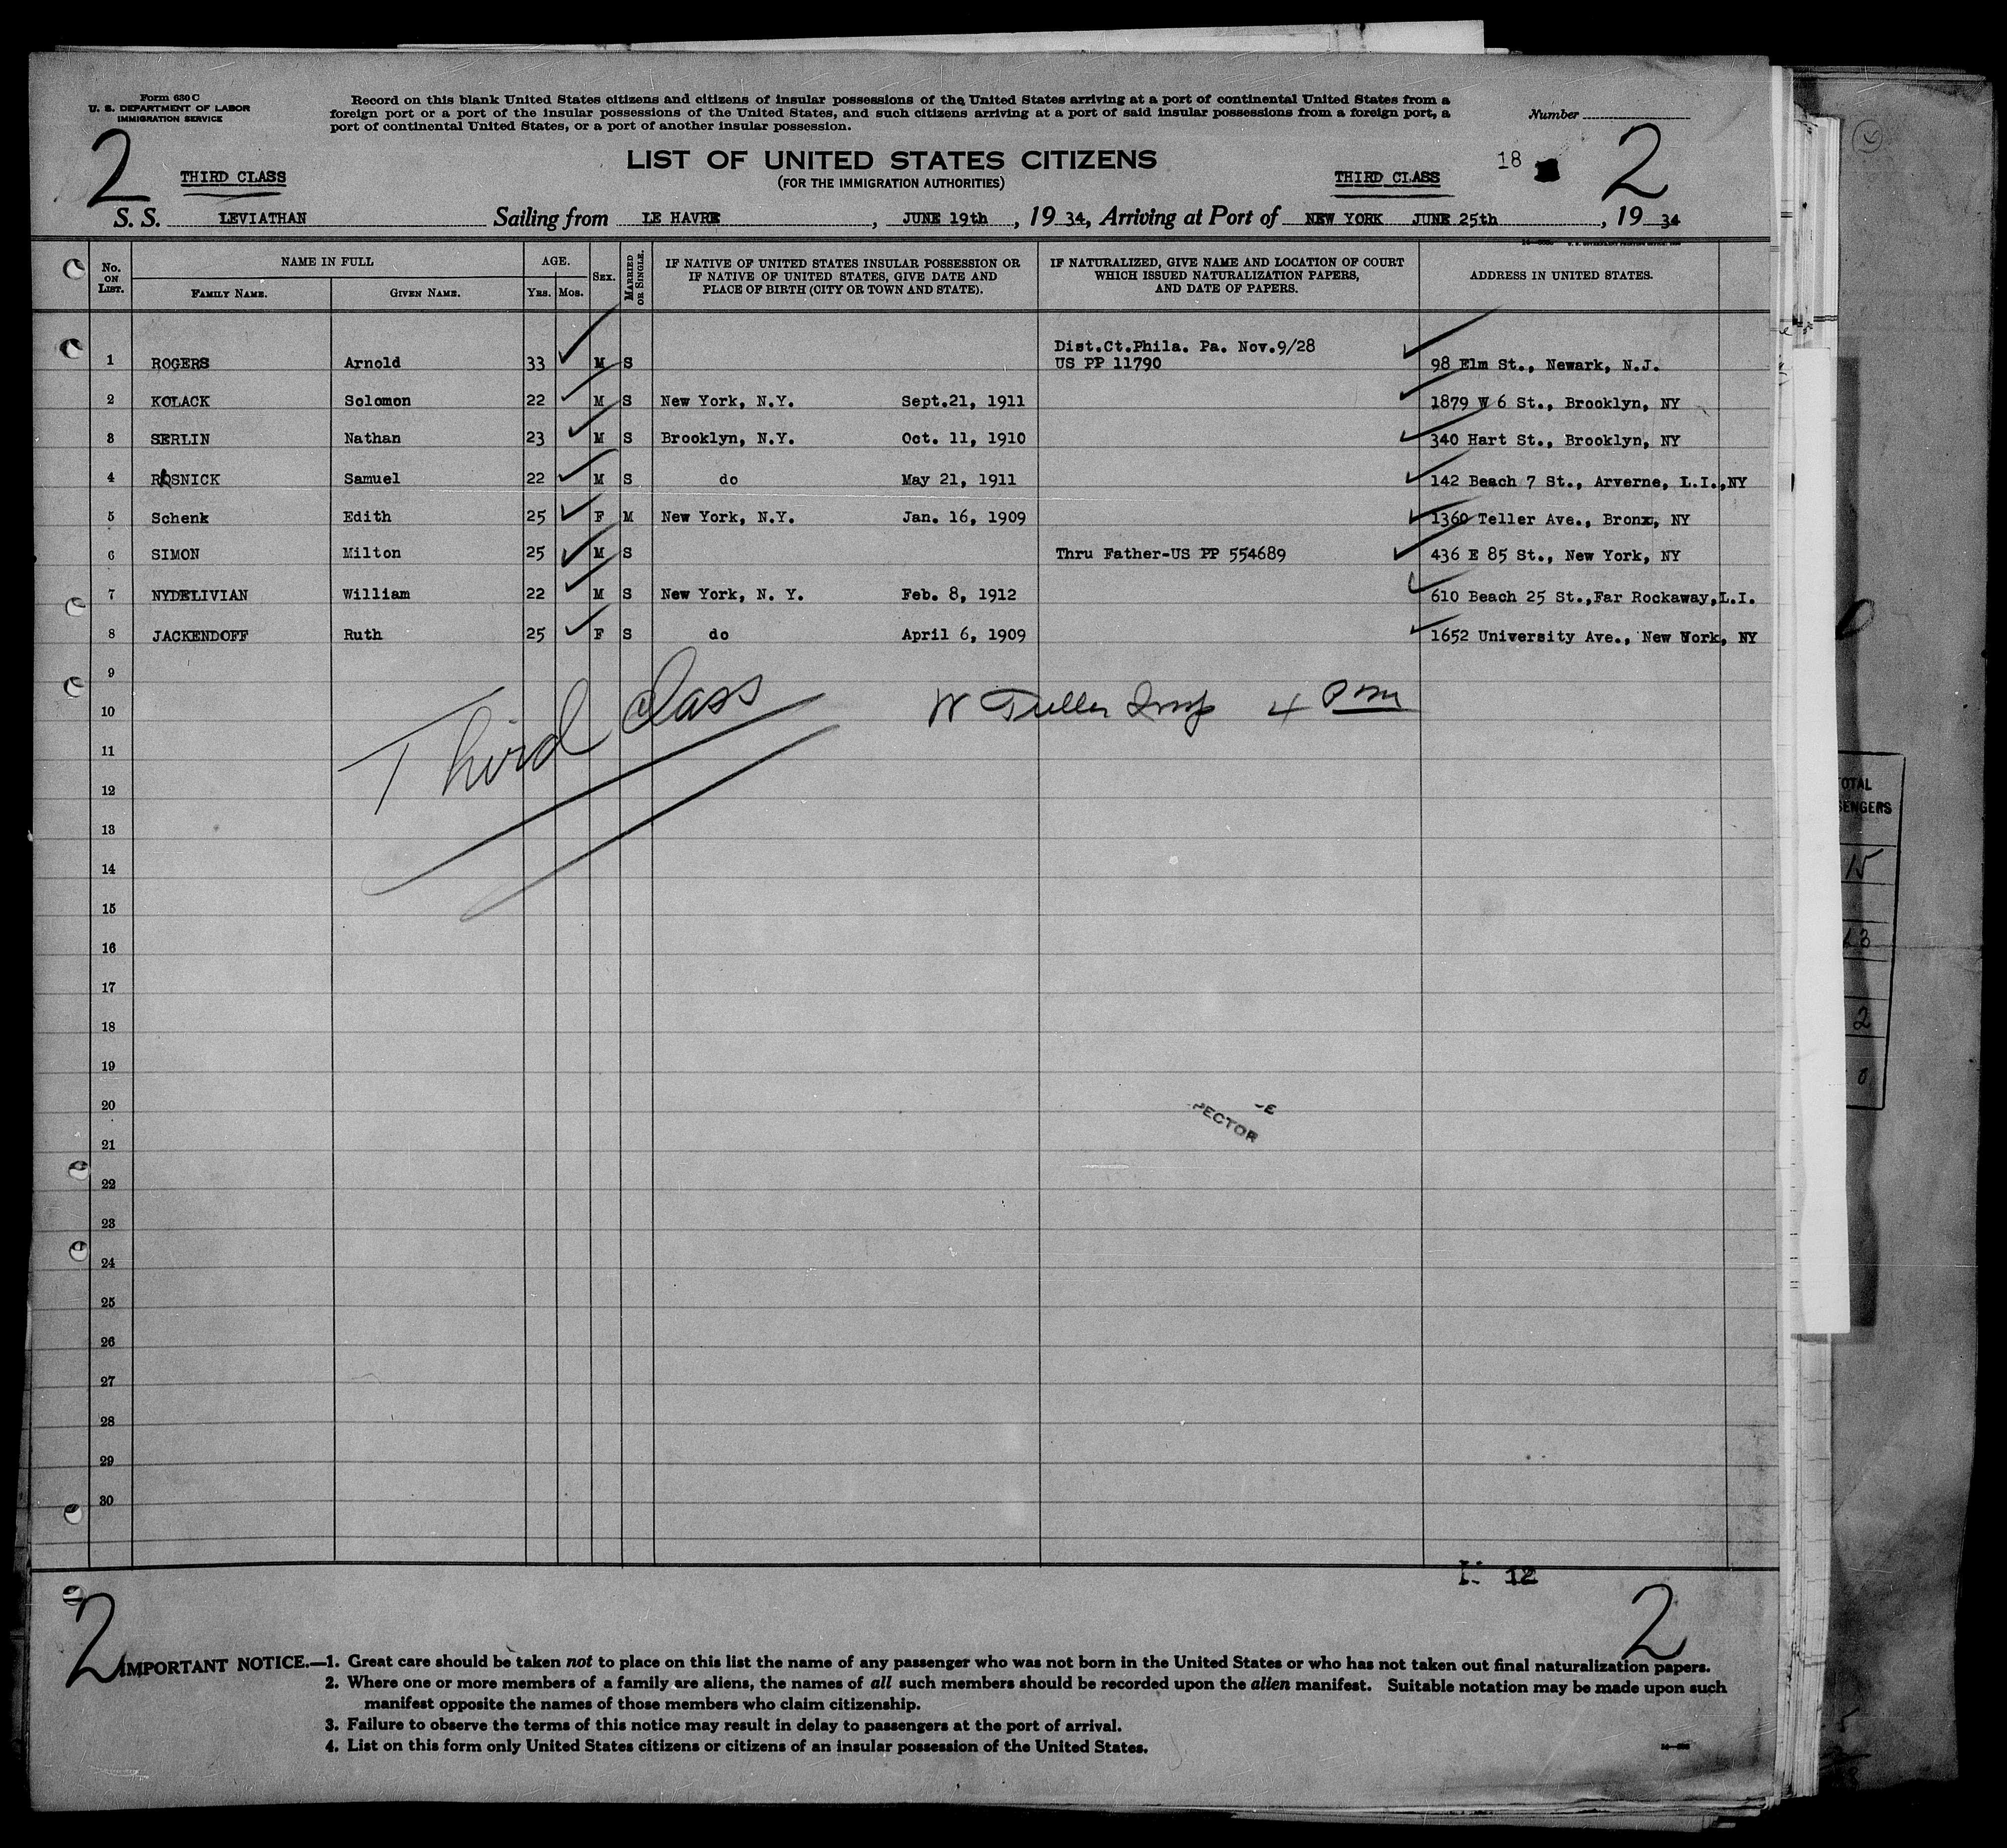 Form 630 C
U. S. DEPARTMENT OF LABOR
IMMIGRATION SERVICE
Record on this blank United States citizens and citizens of insular possessions of the United States arriving at a port of continental United States from a
foreign port or a port of the insular possessions of the United States, and such citizens arriving at a port of said insular possessions from a foreign port, a
port of continental United States, or a port of another insular possession.
Number
2
THIRD CLASS
LIST OF UNITED STATES CITIZENS
(FOR THE IMMIGRATION AUTHORITIES)
THIRD CLASS
18
2
S. S. LEVIATHAN Sailing from LE HAVRE, JUNE 19th, 19 34, Arriving at Port of NEW YORK JUNE 25th, 19 34
No. ON LIST. NAME IN FULL FAMILY NAME. GIVEN NAME. AGE. YRS. MOS. SEX. MARRIED OR SINGLE. IF NATIVE OF UNITED STATES INSULAR POSSESSION OR IF NATIVE OF UNITED STATES, GIVE DATE AND PLACE OF BIRTH (CITY OR TOWN AND STATE). IF NATURALIZED, GIVE NAME AND LOCATION OF COURT WHICH ISSUED NATURALIZATION PAPERS, AND DATE OF PAPERS. ADDRESS IN UNITED STATES.
Dist.Ct.Phila. Pa. Nov.9/28
1 ROGERS Arnold 33 M S US PP 11790 98 Elm St., Newark, N.J.
2 KOLACK Solomon 22 M S New York, N.Y. Sept.21, 1911 1879 W 6 St., Brooklyn, NY
3 SERLIN Nathan 23 M S Brooklyn, N.Y. Oct. 11, 1910 340 Hart St., Brooklyn, NY
4 ROSNICK Samuel 22 M S do May 21, 1911 142 Beach 7 St., Arverne, L.I.,NY
5 Schenk Edith 25 F M New York, N.Y. Jan. 16, 1909 1360 Teller Ave., Bronx, NY
6 SIMON Milton 25 M S Thru Father-US PP 554689 436 E 85 St., New York, NY
7 NYDELIVIAN William 22 M S New York, N. Y. Feb. 8, 1912 610 Beach 25 St.,Far Rockaway,L.I.
8 JACKENDOFF Ruth 25 F S do April 6, 1909 1652 University Ave., New Work, NY
9
10 Third Class W Tuller Insp 4 Pm
11
12
13
14
15
16
17
18
19
20
PECTOR
21
22
23
24
25
26
27
28
29
30
12
2
2
IMPORTANT NOTICE.—1. Great care should be taken not to place on this list the name of any passenger who was not born in the United States or who has not taken out final naturalization papers.
2. Where one or more members of a family are aliens, the names of all such members should be recorded upon the alien manifest. Suitable notation may be made upon such
manifest opposite the names of those members who claim citizenship.
3. Failure to observe the terms of this notice may result in delay to passengers at the port of arrival.
4. List on this form only United States citizens or citizens of an insular possession of the United States.
OTAL
SENGERS
15
2
0